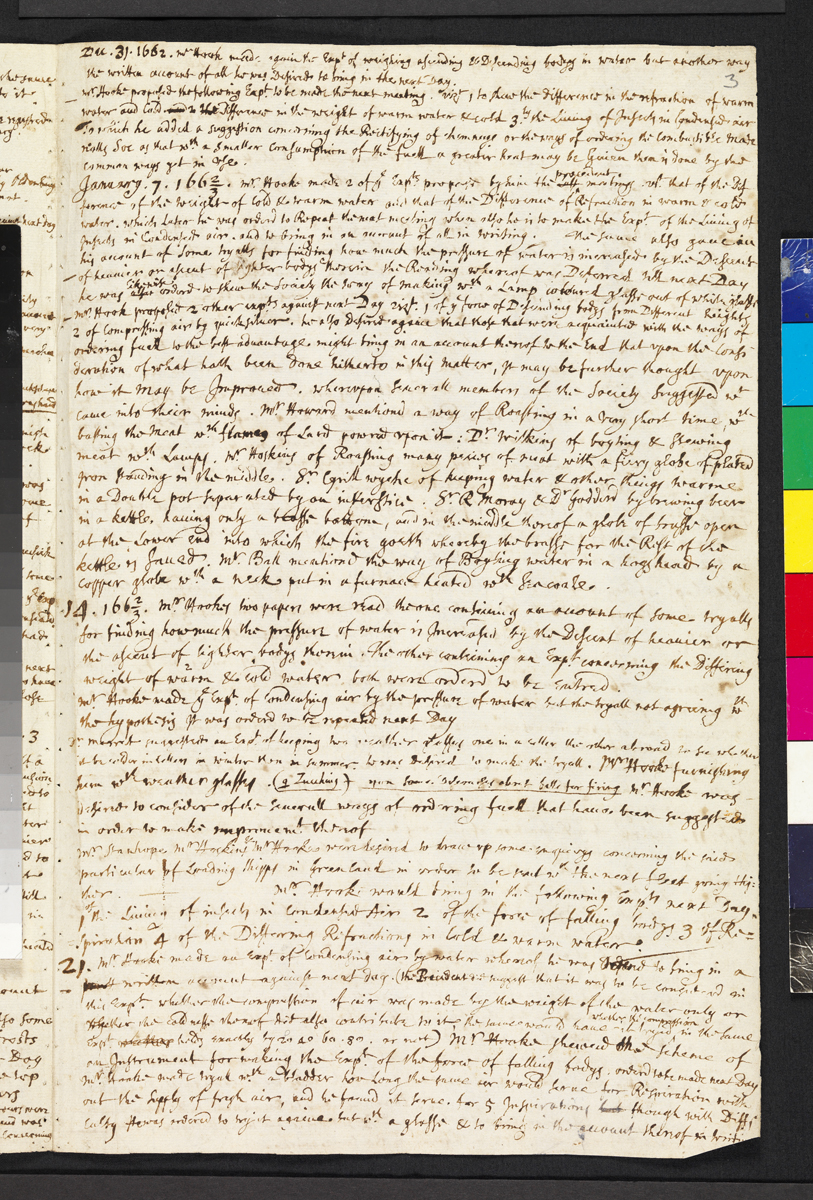 3
Dec. 31. 1662. Mr Hook made againe the Expt of weighing ascending & Descending bodys in water but another way
the written account of all he was Desired to bring in the next Day.
Mr. Hooke proposed the following Expts to be made the next meeting. vizt 1 to shew the difference in the refraction of warm
water and cold 2 the Difference in the weight of warm water & cold 3.ly the Living of Insects in Condensed air
to which he added a suggestion concerning the Rectifying of chimneys or the ways of ordering the Combustible made
soe as that wth a smaller Consumption of the fuell a greater heat may be given then is done by the
common ways yet in use.
January. 7. 1662/3. Mr Hooke made 2 of ye Expts propos'd by him the precedent meeting. vizt that of the Dif
ference of the weight of Cold & warm water and that of the Difference of Refraction in warm & cold
water. which Later he was ordered to Repeat the next meeting when also he is to make the Expt of the Living of
Insects in Condensed air. and to bring in an account of all in writing. The same also gave in
his account of some tryalls for finding how much the pressure of water is increased by the Descent
of heavier or ascent of lighter bodys therein the Reading whereof was Deferred till next Day
he was likewise ordered to shew the Society the way of making wth a Lamp coloured glasse out of white glasse
Mr. Hook proposed 2 other expts against next Day vizt. 1 of ye force of Descending bodys from Different heights
2 of compressing air by quicksilver. he also Desired againe that those that were acquainted with the ways of
ordering fuell to the best advantage might bring in an account thereof to the End that upon the Consi
deration of what hath been Done hitherto in this matter, It may be further thought upon
how it may be Improued. whereupon severall members of the Society Suggested wt
came into their minds. Mr. Howard mentiond a way of Roasting in a very short time, wth
basting the meat wth flames of Lard powred upon it: Dr. Wilkins of boyling & Stewing
meat wth Lamps. Mr Hoskins of Roasting many peices of meat with a fiery globe of plated
Iron standing in the middle. Sr Cyrill wyche of keeping water & other things warme
in a Double pot separated by an interstice. Sr R. Moray & Dr Goddard by brewing beer
in a kettle having only a brasse bottome, and in the middle thereof a globe of brasse open
at the Lower End into which the fire goeth whereby the brasse for the Rest of the
kettle is saued. Mr. Ball mentioned the way of Boyling water in a hogshead by a
Copper globe wth a neck put in a furnace heated wth Seacoale.
14. 1662/3. Mr Hookes two papers were read the one containing an account of some tryalls
for finding how much the pressure of water is Increased by the Descent of heavier or
the ascent of lighter bodys therein. the other containing an Expt concerning the Differing
weight of warm & cold water. both were ordered to be Entred.
Mr. Hooke made ye Expt of Condensing air by the pressure of water but the tryall not agreeing wth
the hypothesis It was ordered to be repeated next Day
Dr merret suggested an Expt of keeping two weather glasses one in a celler the other abroad to see whether
it be colder in cellers in winter then in summer he was desired to make the tryall. Mr Hooke furnishing
him wth weather glasses. (q Zucchius) upon some Discourse about balls for firing Mr. Hooke was
desired to consider of the severall ways of ordering fuell that have been suggested
in order to make improuemt thereof
Mr. Stanhope Mr Hoskins Mr Hooke were desired to draw up some enquirys concerning the
particular of Loading shipps in Greenland in order to be sent wth the next fleet going thi-
ther. Mr. Hooke would bring in the following Expts next Day-
1 the Living of insects in Condensed Air 2 of the force of falling bodys 3 of Re-
spiration 4 of the Differing Refractions in Cold & warm water.
21. Mr. Hooke made an Expt of Condensing air by water whereof he was to bring in a
written account against next Day. (the President suggest that it was to be considerd in
this Expt. whether the compression of air was made by the weight of the water only or
whether the coldnesse thereof Did not also contribute to it, in the same
Expt exactly by 20 40 60. 80. or not) Mr. Hooke shewed the scheme of
an Instrument for making the Expt of the force of falling bodys. ordered to be made next Day
Mr. Hooke made tryall wth a bladder how long the same air would serve for Respiration with
out the supply of fresh air, and he found it serue for 5 Inspirations though with Diffi
culty He was ordered to try it againe but wth a glasse & to bring in the account thereof in writi